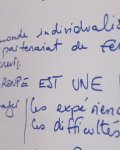 monde individualis
partenariat du fe
ROUPE EST UNE
les expérien
les difficultés